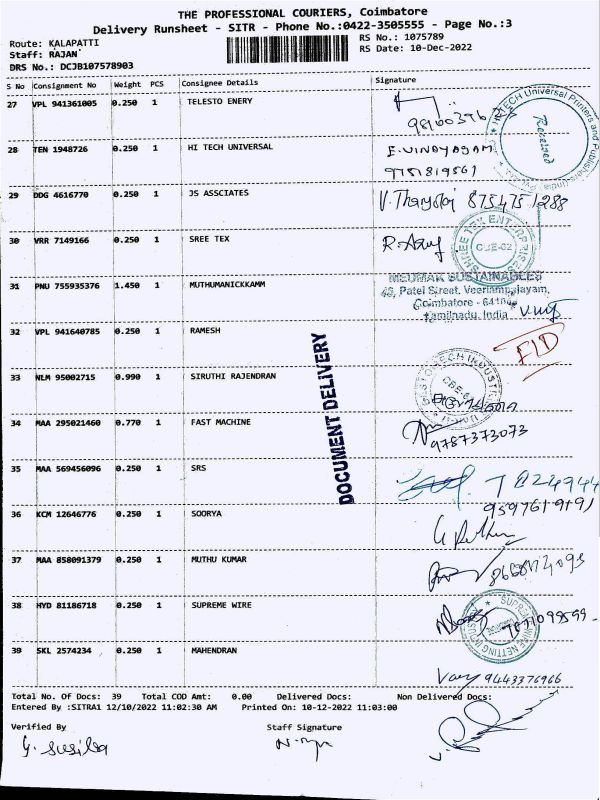 THE PROFESSIONAL COURIERS, Coimbatore
Delivery Runsheet - SITR - Phone No.:0422-3505555 - Page No.:3
Route: KALAPATTI
RS No.: 1075789
Staff: RAJAN
RS Date: 10-Dec-2022
DRS No.: DCJB107578903
S No Consignment No Weight PCS Consignee Details Signature
27 VPL 941361005 0.250 1 TELESTO ENERY
HITECH Universal Printers and Publishers (India)
Received
28 TEN 1948726 0.250 1 HI TECH UNIVERSAL E.VINAYAGAM
9751819561
29 DDG 4616770 0.250 1 JS ASSCIATES 8754751288
30 VRR 7149166 0.250 1 SREE TEX
SHREE TEX ENTERPRISES
CBE-62
31 PNU 755935376 1.450 1 MUTHUMANICKKAMM
MEDMAK SUSTAINABLES
Patel Street, Veeriampalayam,
Coimbatore - 
Tamilnadu, India
32 VPL 941640785 0.250 1 RAMESH
FLD
33 NLM 95002715 0.990 1 SIRUTHI RAJENDRAN
34 MAA 295021460 0.770 1 FAST MACHINE
9787373073
35 MAA 569456096 0.250 1 SRS
9597619191
36 KCM 12646776 0.250 1 SOORYA
37 MAA 858091379 0.250 1 MUTHU KUMAR
38 HYD 81186718 0.250 1 SUPREME WIRE
SUPREME WIRE NETTING INDUSTRY
39 SKL 2574234 0.250 1 MAHENDRAN
9443376966
DOCUMENT DELIVERY
Total No. Of Docs: 39 Total COD Amt: 0.00 Delivered Docs: Non Delivered Docs:
Entered By :SITRA1 12/10/2022 11:02:30 AM Printed On: 10-12-2022 11:03:00
Verified By Staff Signature
G. Susila